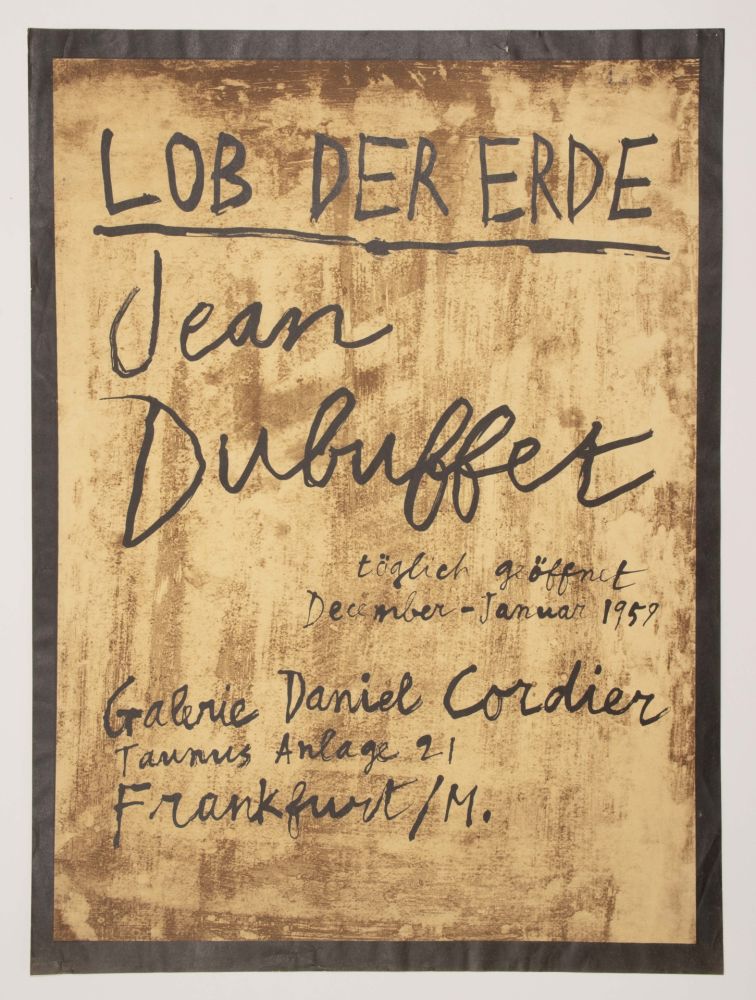 LOB DER ERDE
Jean
Dubuffet
täglich geöffnet
December - Januar 1959
Galerie Daniel Cordier
Taunus Anlage 21
Frankfurt/M.